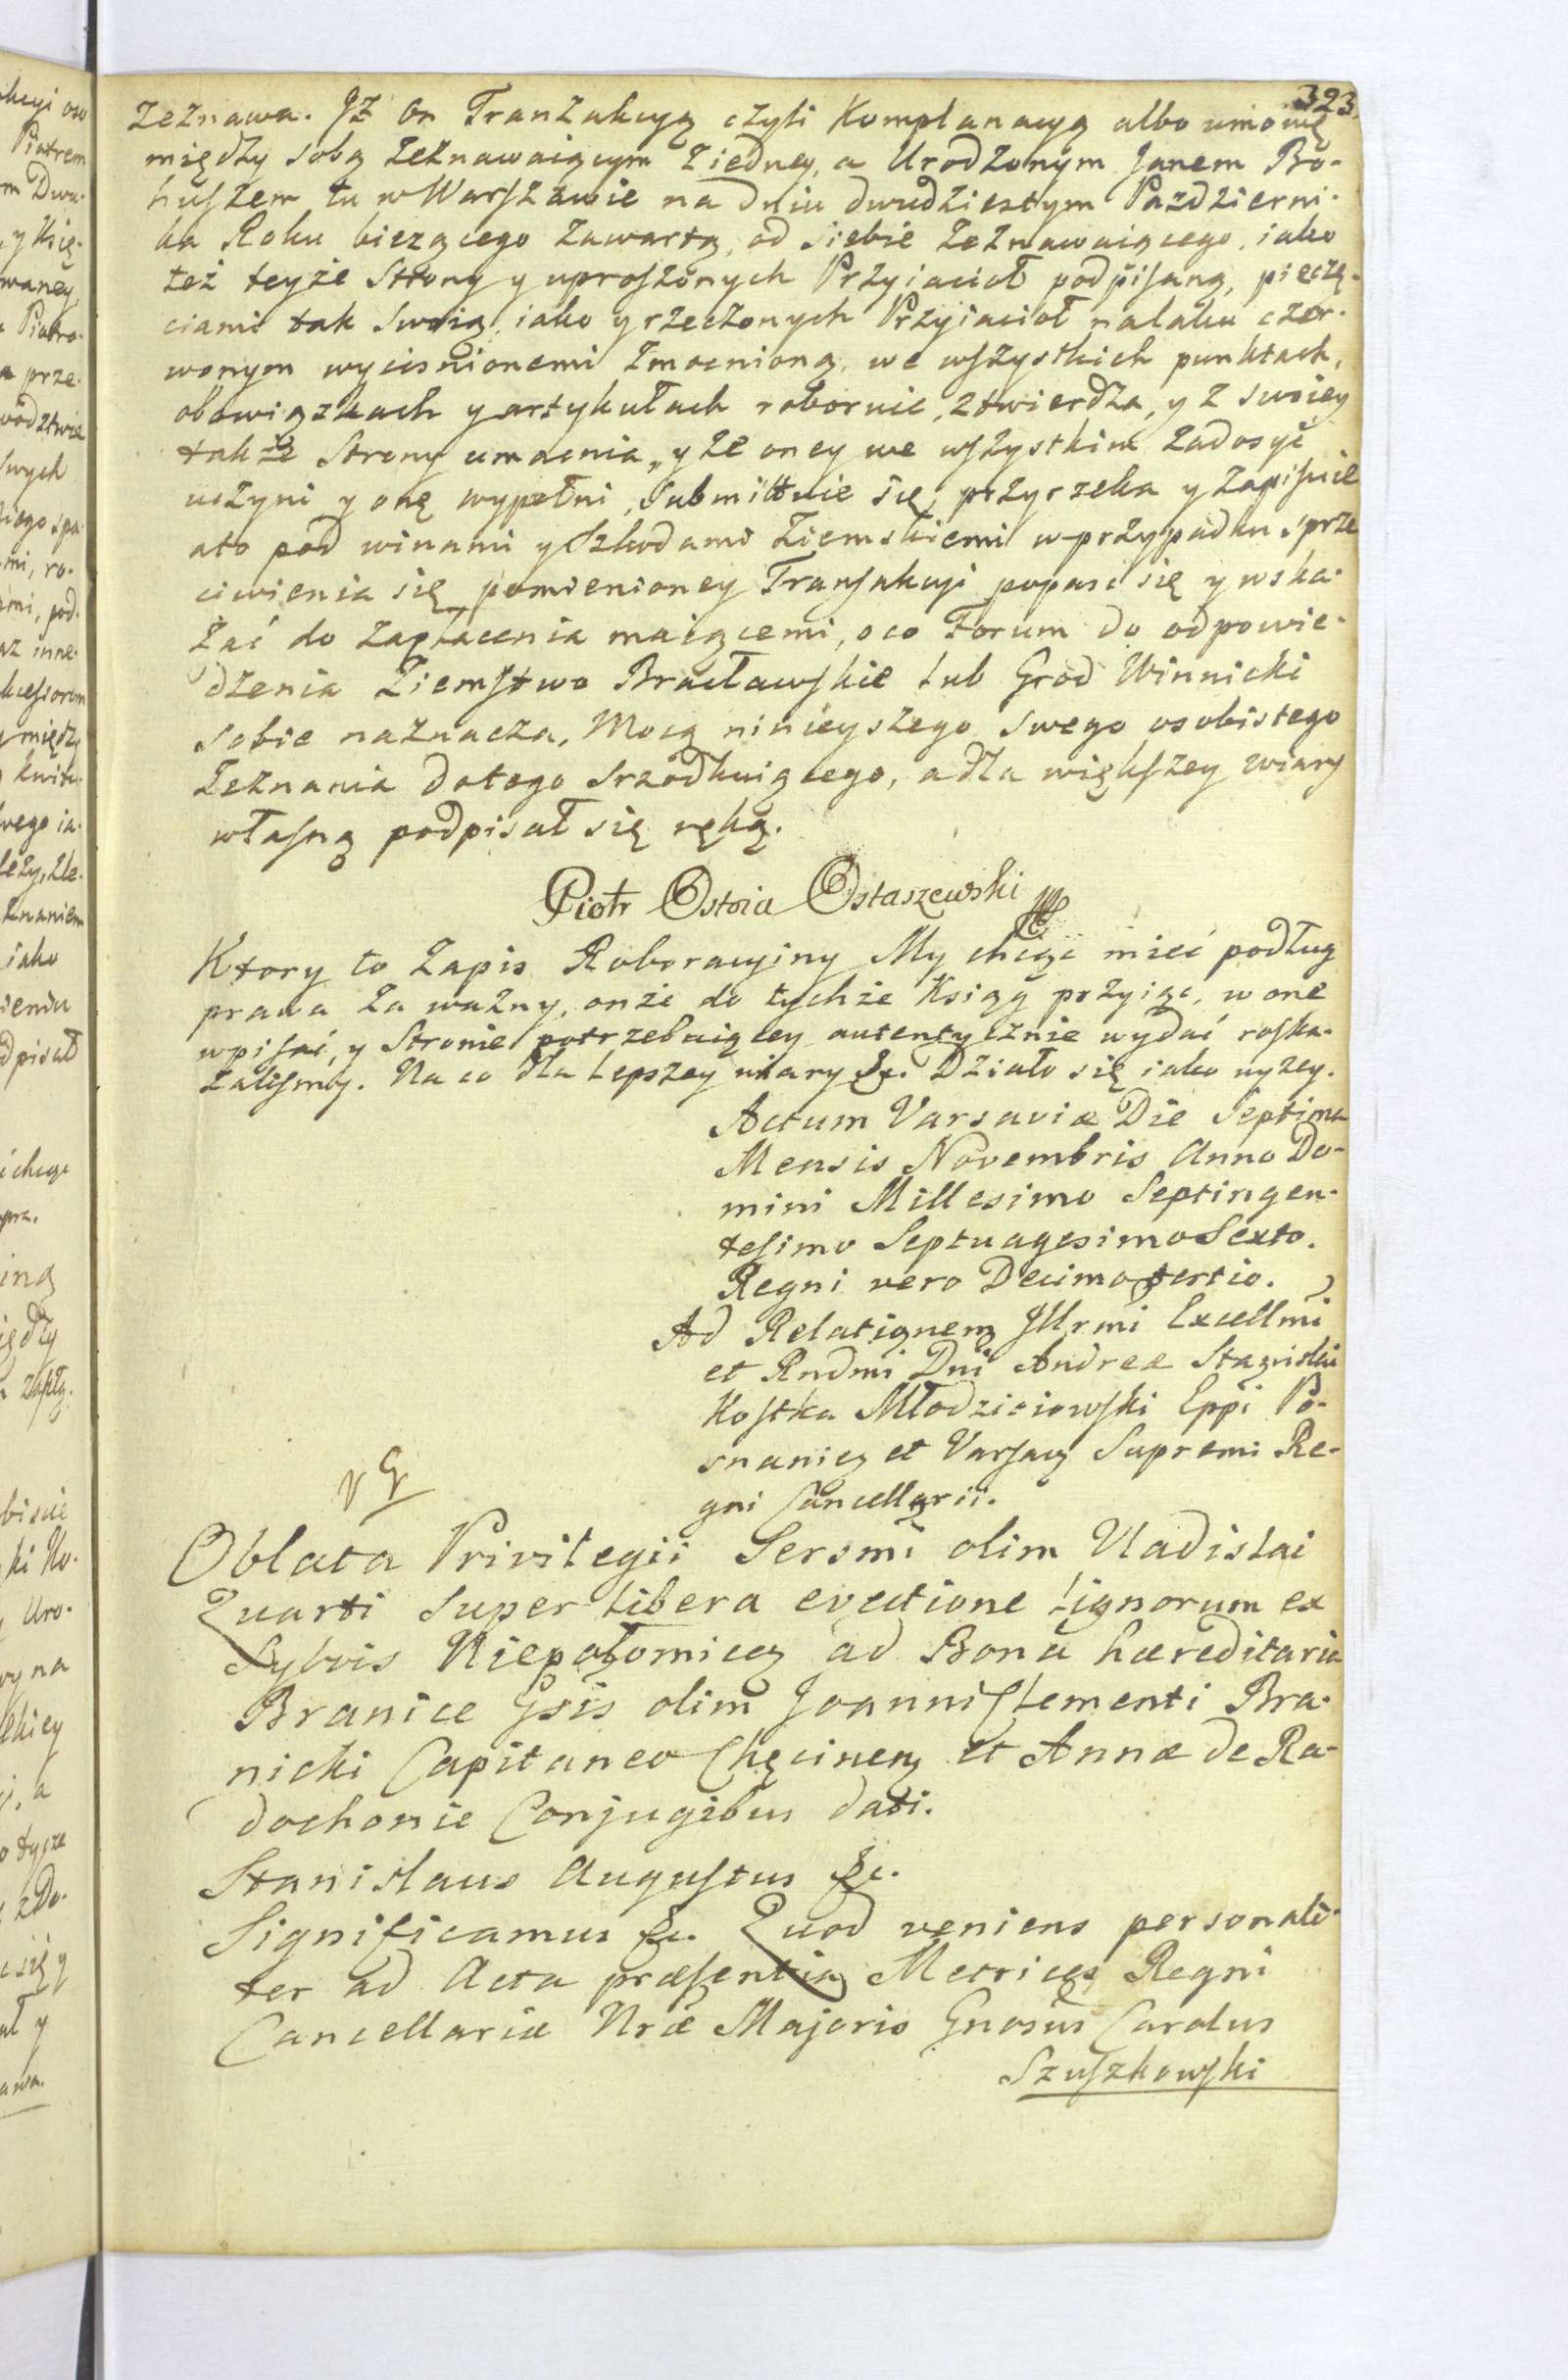 323.
zeznawa. Jż on Tranzakcyą czyli Komplanacyą albo umowę
między sobą zeznawaiącym z iedney, a Urodzonym Janem Bo-
huszem tu w Warszawie na dniu dwudziestym Pazdzierni-
ka Roku bieżącego zawartą, od siebie zeznawaiącego, iako
też teyże Strony y uproszonych Przyiacioł podpisaną, pieczę-
ciami tak Swoią, iako y rzeczonych Przyiacioł na laku czer-
wonym wycisnionemi zmocnioną, we wszystkich punktach,
obowiązkach y artykułach roboruie, ztwierdza, y z swoiey
także Strony umacnia, y że oney we wszystkim zadosyć
uczyni y onę wypełni, Submittuie się, przyrzeka y zapisuie
a to pod winami y Szkodami Ziemskiemi w przypadku sprze
ciwienia się pomienioney Transakcyi popaść się y wska-
zać do zapłacenia maiącemi, o co Forum do odpowie-
dzenia Ziemstwo Bracławskie lub Grod Winnicki
sobie naznacza, Mocą ninieyszego Swego osobistego
Zeznania do tego Srzodkuiącego, a dla większey wiary
własną podpisał się ręką.
Piotr Ostoia Ostaszewski
Ktory to Zapis Roboracyiny My chcąc mieć podług
prawa za ważny, onże do tychże Ksiąg przyiąć, w one
wpisać, y Stronie potrzebuiącey autentycznie wydać roska-
zalismy. Na co dla lepszey wiary &c. Działo się iako wyzey.
Actum Varsaviæ Die Septima
Mensis Novembris Anno Do-
mini Millesimo Septingen-
tesimo Septuagesimo Sexto.
Regni vero Decimo tertio.
Ad Relationem Jllrmi Excellmi
et Rndmi Dni Andreæ Stanislai
Kostka Młodzieiowski Eppi Po-
snanien et Varsavien Supremi Re-
gni Cancellarii.
Oblata Privilegii Sersmi olim Vladislai
Quarti Super libera evectione lignorum ex
Sylvis Niepołomicen ad Bona hæreditaria
Branice Gsis olim Joanni Clementi Bra-
nicki Capitaneo Chęcinen et Annæ de Ra-
dochonie Conjugibus dati.
Stanislaus Augustus &c.
Significamus &c. Quod veniens personali-
ter ad Acta præsentia Metrices Regni
Cancellariæ Nræ Majoris Gnosus Carolus
Szuszkowski